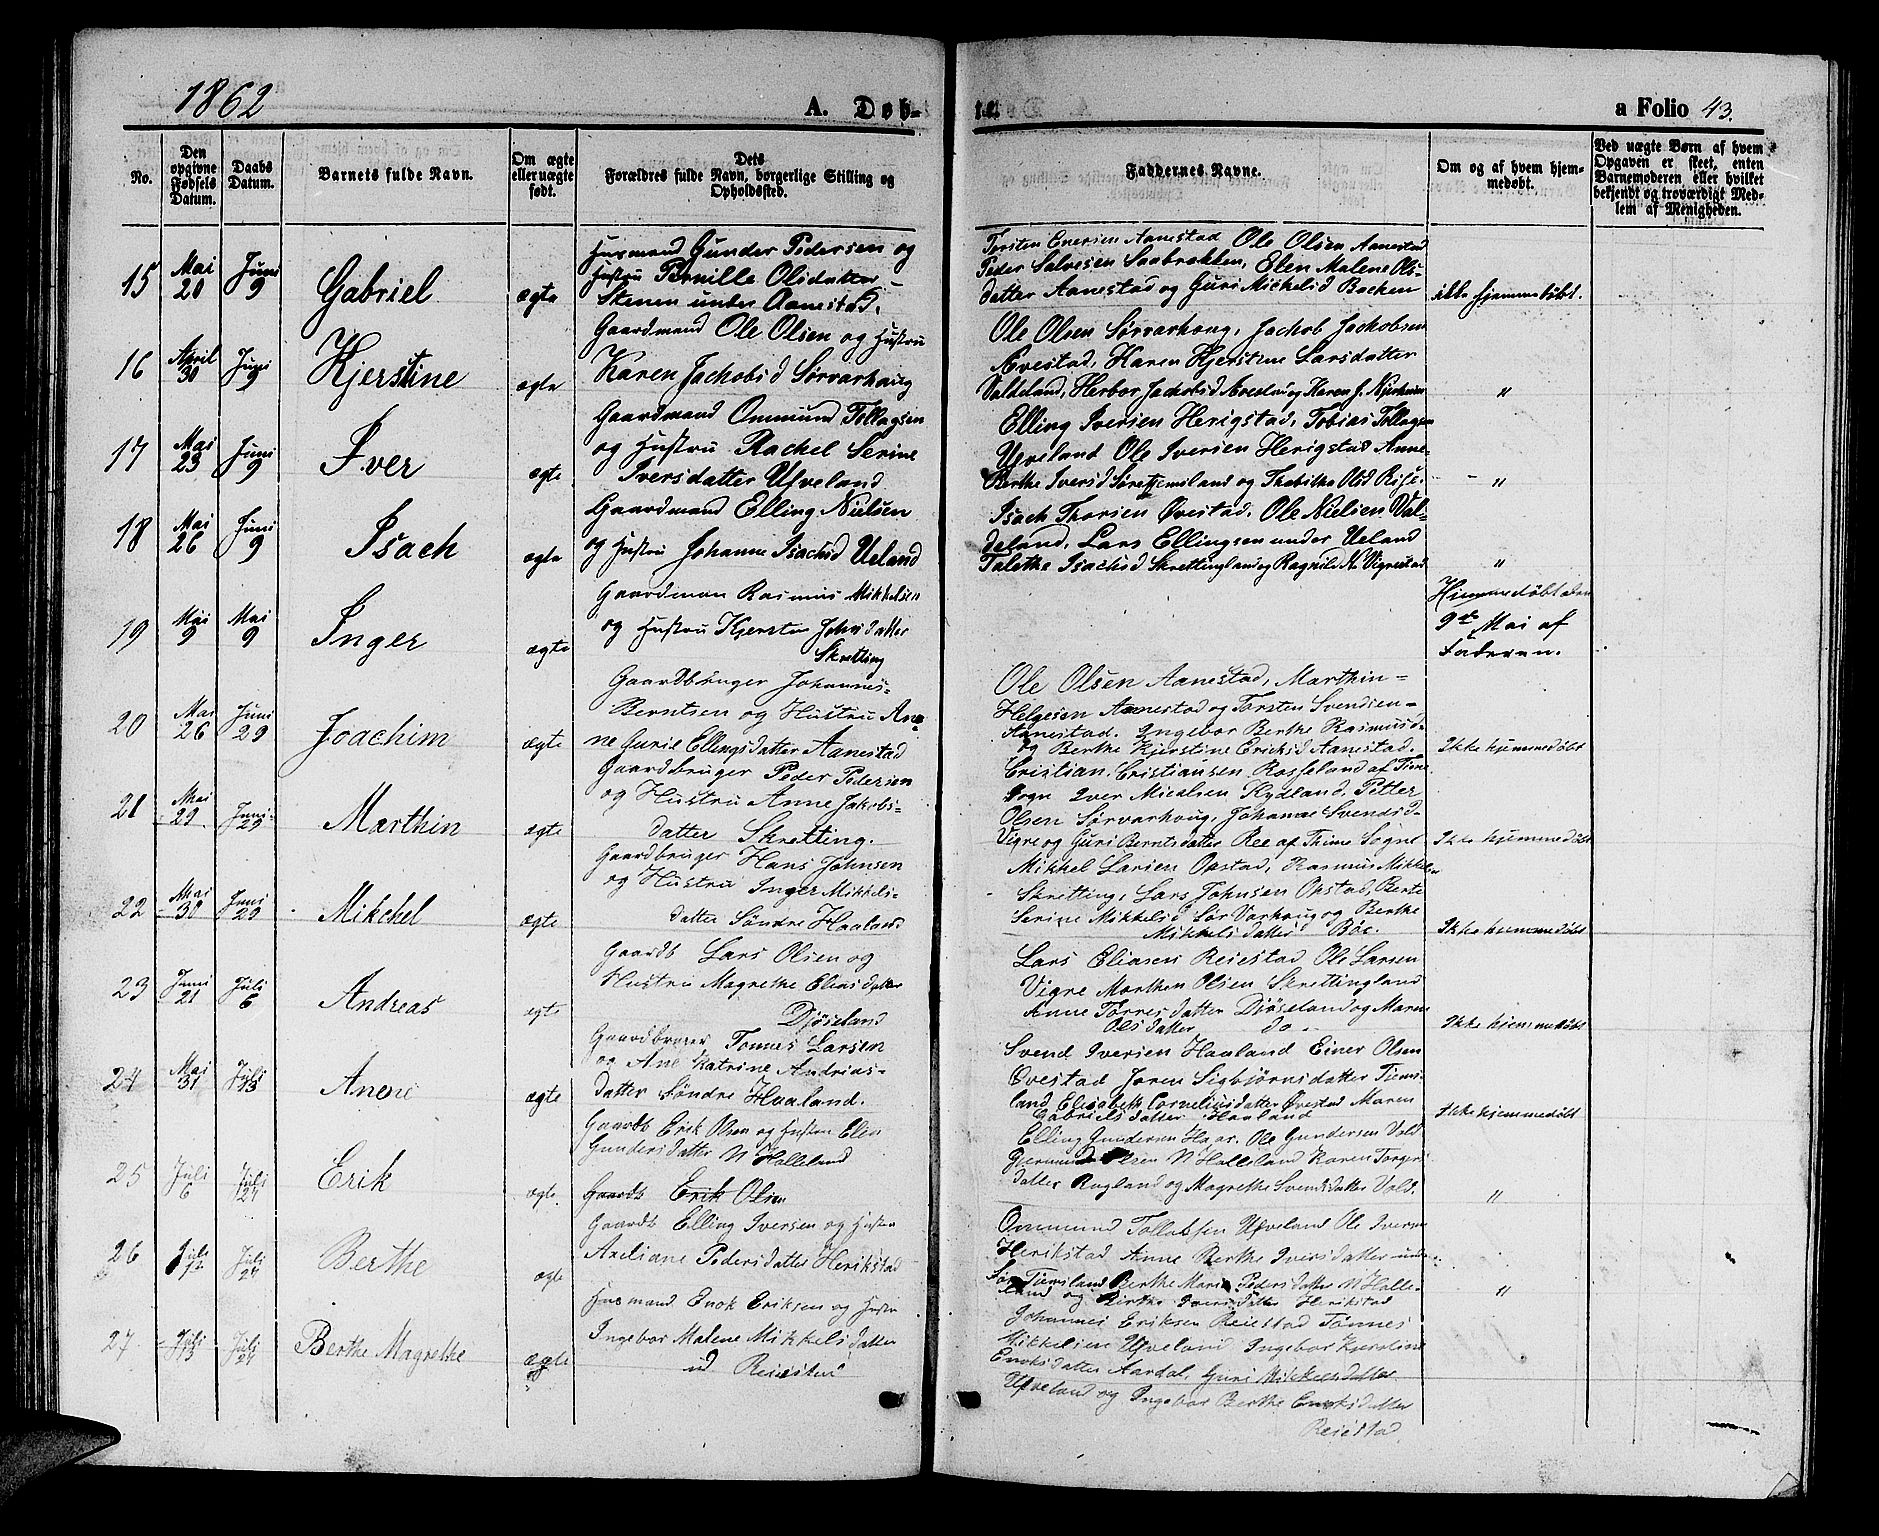 1862 A. Døb-
a Folio 43.
No.
Den opgivne Fødsels Datum.
Daabs Datum.
Barnets fulde Navn.
Om ægte eller uægte født.
Dets Forældres fulde Navn, borgerlige Stilling og Opholdssted.
Faddernes Navne.
Om og af hvem hjemmedøbt.
Ved uægte Børn af hvem Opgaven er skeet, enten Barnemoderen eller hvilket bekjendt og troværdigt Medlem af Menigheden.
15 Mai 20 Juni 9 Gabriel ægte
Husmand Gunder Pedersen og
Hustru Pernille Olsdatter
Stenen under Aanestad.
Torsten Aanestad Ole Olsen Aanestad
Peder Salvesen Saabrekken, Elen Malene Ols-
datter Aanestad og Guri Mickelsd Backen
ikke hjemmedøbt.
16 April 30 Juni 9 Kjerstine ægte
Gaardmand Ole Olsen og Hustru
Karen Jachobsd Sørvarhaug
Ole Olsen Sørvarhoug, Jachob Jachobsen
Avestad, Karen Kjerstine Larsdatter
Valdeland, Herbor Jachobsd Avestad og Karen J.
"
17 Mai 23 Juni 9 Iver ægte
Gaardmand Ommund Tollagsen
og Hustru Rachel Serine
Iversdatter Ufveland
Elling Iversen Herigstad, Tobias Tollagsen
Ufveland Ole Iversen Herigstad Anne
Berthe Iversd og Thabitha Olsd
"
18 Mai 26 Juni 9 Isach ægte
Gaardmand Elling Nielsen
og Hustru Johanne Isachsd Ueland
Isach Thorsen Øvestad, Ole Nielsen Val-
deland, Lars Ellingsen under Ueland
Talethe Isachsd Skrettingland og Ragnile N. Vigrestad
"
19 Mai 9 Mai 9 Inger ægte
Gaardman Rasmus Mikkelsen
og Hustru Kjersten Johnsdatter
Skretting
Hjemmedøbt den
9de Mai af
Faderen.
20 Mai 26 Juni 29 Joachim ægte
Gaardbruger Johannes
Berntsen og Hustru An-
ne Gurie Ellingsdatter Aanestad
Ole Olsen Aanestad, Marthin
Helgesen Aanestad og Torsten Svendsen
Aanestad. Ingebor Berthe Rasmusd
og Berthe Kjerstine Erichsd Aanestad.
Ikke hjemmedøbt
21 Mai 29 Juni 29 Marthin ægte
Gaardbruger Peder Pedersen
og Hustru Anne Jakobs-
datter Skretting.
Cristian Cristiansen Rosseland af Time
Sogn Iver Micalsen Kydland, Petter
Olsen Sørvarhoug, Johanne Svendsd
Vigre og Guri Berntsdatter Ree af Thime Sogn
Ikke hjemmedøbt
22 Mai 30 Juni 29 Mikchel ægte
Gaardbruger Hans Johnsen
og Hustru Inger Mikkels-
datter Søndre Haaland
Mikkel Larsen Opstad, Rasmus Mikkelsen
Skretting, Lars Johnsen Opstad, Berte
Serine Mikkelsd Sør Varhoug og Berthe
Mikkelsdatter Bøe.
Ikke hjemmedøbt
23 Juni 21 Juli 6 Andreas ægte
Gaardb Lars Olsen og
Hustru Magrethe Eliasdatter
Djøseland
Lars Eliasen Reiestad Ole Larsen
Vigre Morthen Olsen Skrettingland
Anne Torresdatter Djøseland og Maren
Olsdatter do
Ikke hjemmedøbt
24 Mai 31 Juli 13 ægte
Gaardbruger Tønnes Larsen
og Ane Katrine Andrias-
datter Søndre Haaland.
Svend Iversen Haaland Einer Olsen
Øvestad Joren Sigbjørnsdatter Tiems-
land Elisabeth Corneliusdatter Øvestad Maren
Gabrielsdatter Haaland
Ikke hjemmedøbt
25 Juli 6 Juli 27 Erik ægte
Gaardb Erik Olsen og Hustru Elen
Gundersdatter N Holleland
Gaardb Erik Olsen
Elling Gundersen Haar. Ole Gundersen Vold
Gjermund Olsen N Holleland Karen Torgers-
datter Rugland og Magrethe Svendsdatter Vold.
"
26 Juli Juli 27 Berthe ægte
Gaardb Elling Iversen og Hustru
Axeliane Pedersdatter Herikstad
Ommund Tollagsen Ufveland Ole Iversen
Herikstad Anne Berthe Iversdatter under
Sør Tiemsland Berthe Marie Pedersdatter N Holle-
land og Birthe Iversdatter Herikstad
"
27 Juli 13 Juli 27 Berthe Magrethe ægte
Husmand Enok Eriksen og Hustru
Ingebor Malene Mikkelsdatter
ud Reiestad
Johannes Eriksen Reiestad Tønnes
Mikkelsen Ufveland Ingebor Karoline
Enoksdatter Aardal, Guri Mikkelsdatter
Ufveland og Ingebor Berthe Enoksdatter
Reiestad